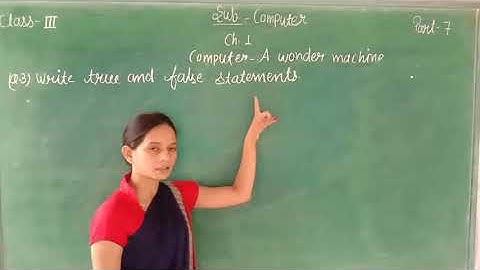 Class- III
Sub - Computer
Part- 7
Ch. 1
Computer- A wonder machine
Q3) write true and false statements